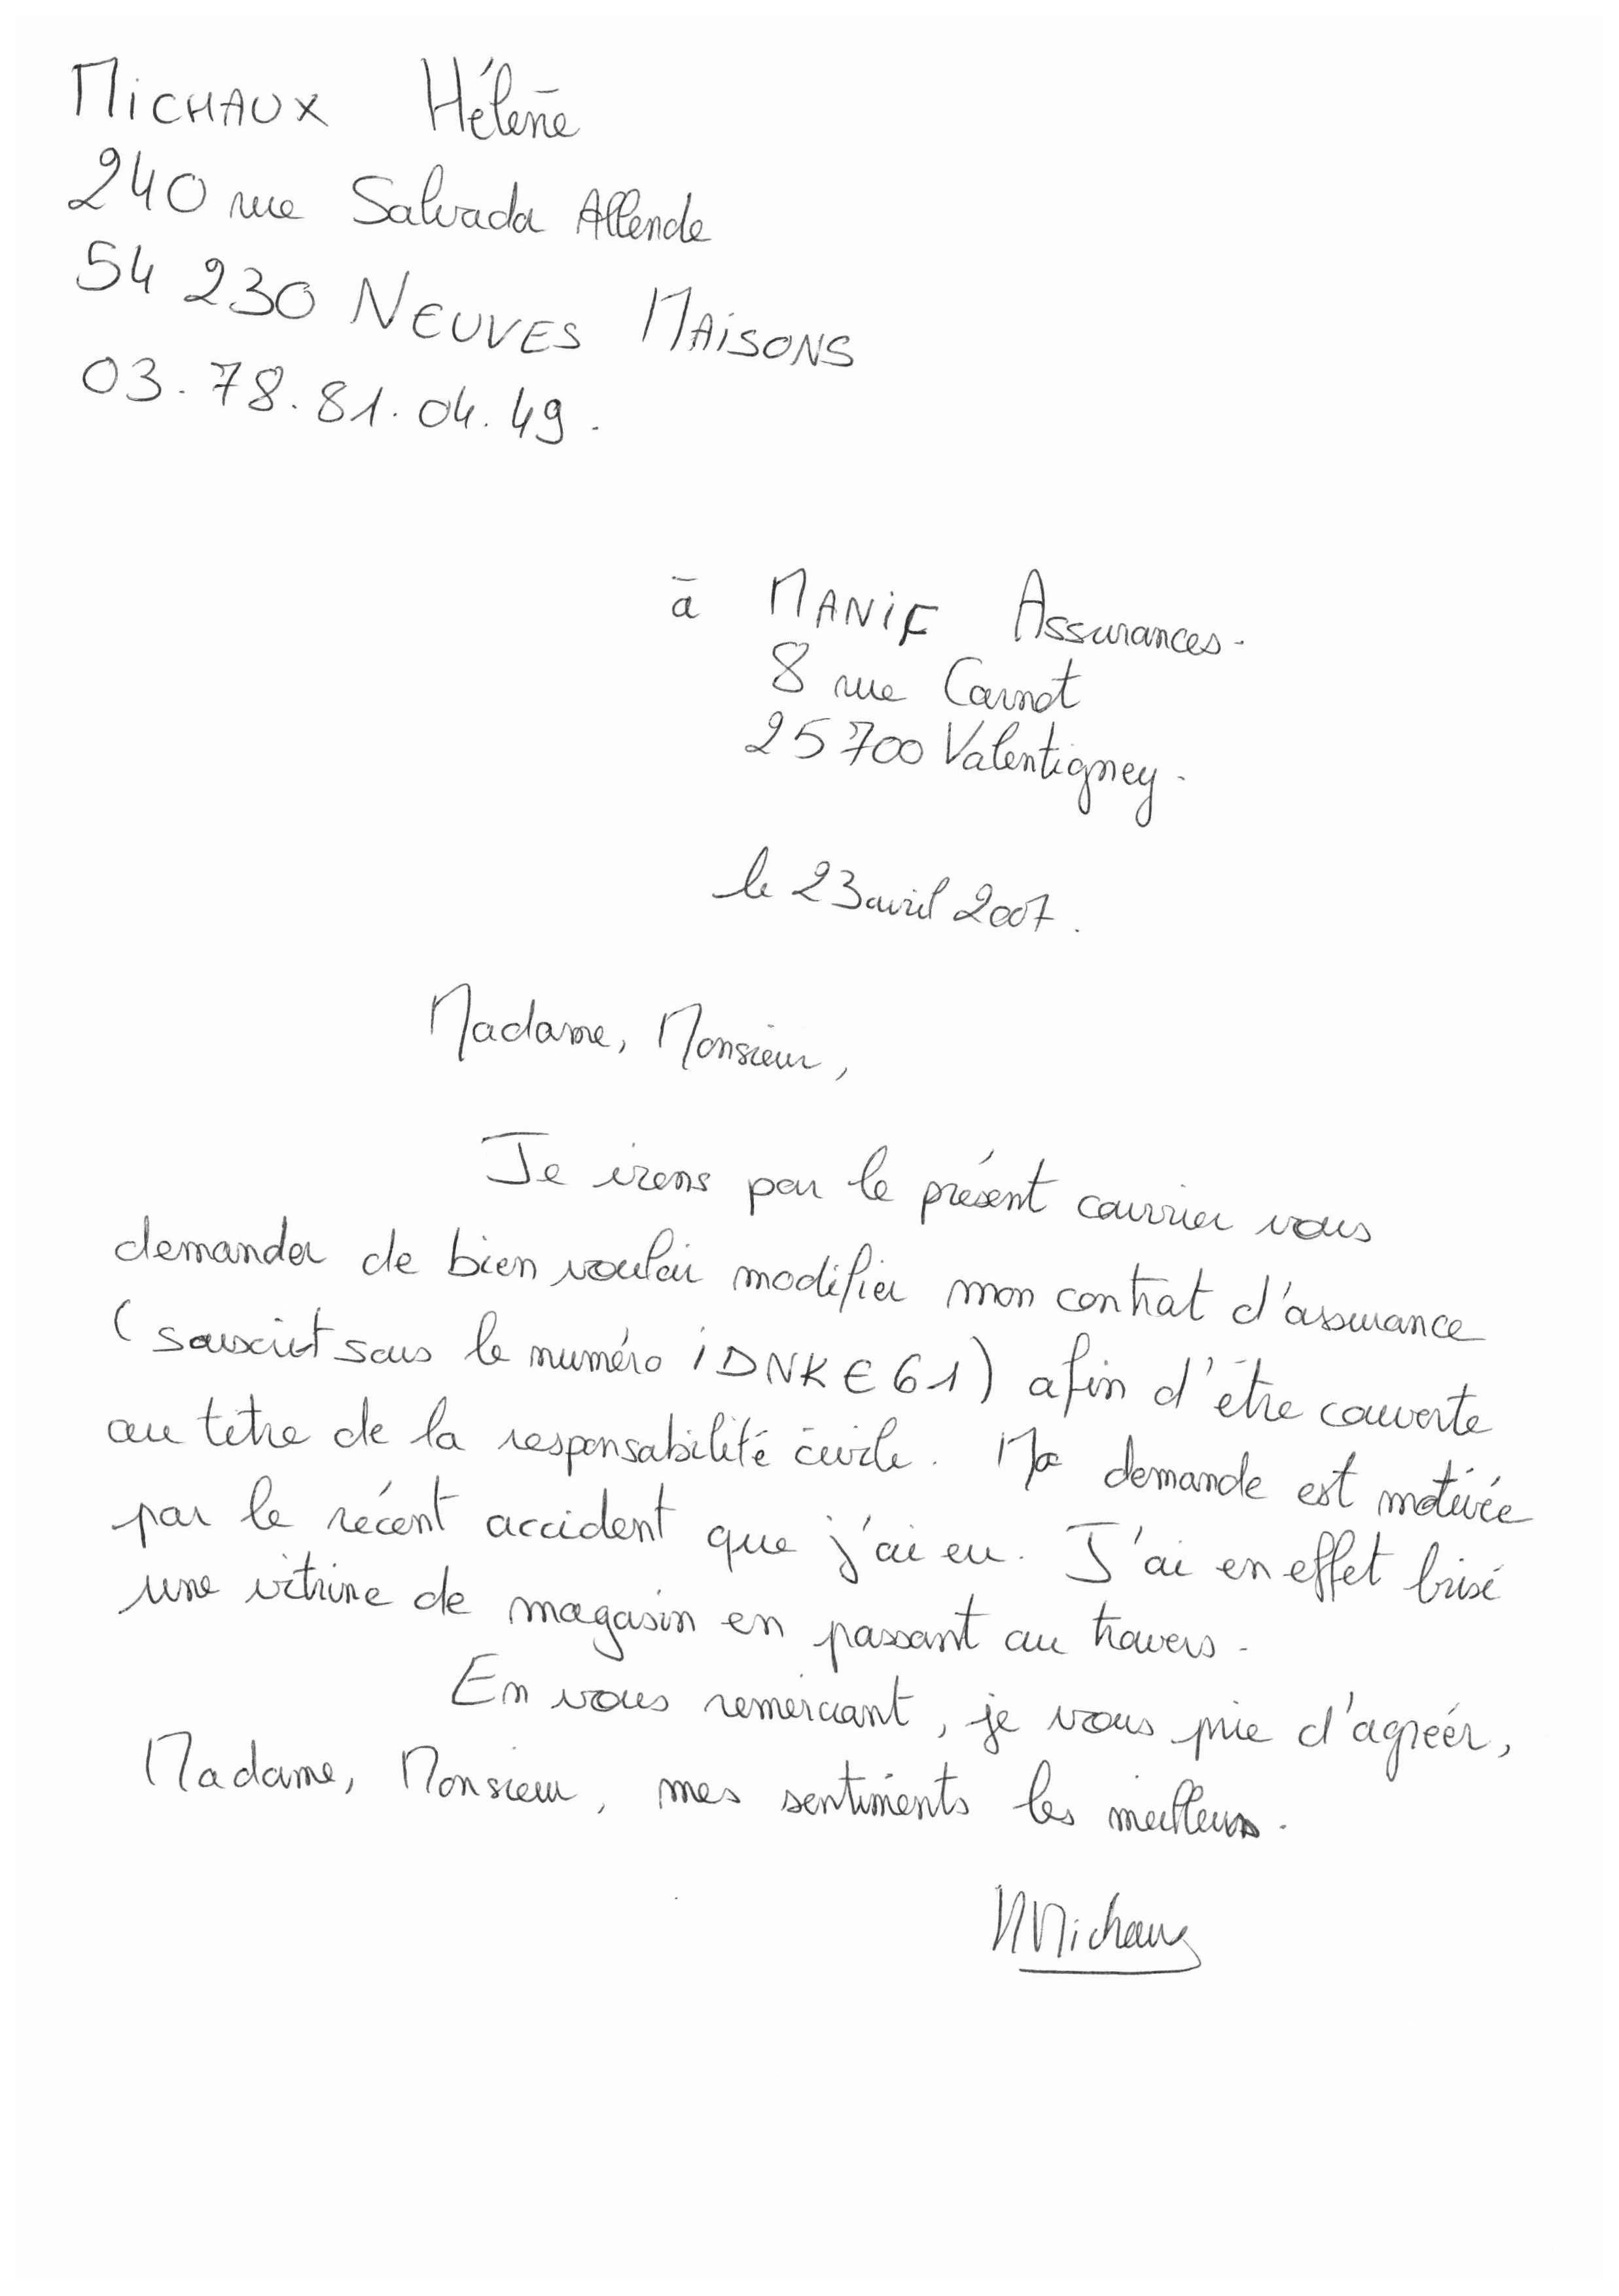 MICHAUX Hélène
240 rue Salvada Allende
54 230 NEUVES MAISONS
03.78.81.04.49.
à MANIF Assurances.
8 rue Carnot
25700 Valentigney.
le 23 avril 2007.
Madame, Monsieur,
Je viens par le présent courrier vous
demander de bien vouloir modifier mon contrat d'assurance
(souscrit sous le numéro IDNKE61) afin d'être couverte
au titre de la responsabilité civile. Ma demande est motivée
par le récent accident que j'ai eu. J'ai en effet brisé
une vitrine de magasin en passant au travers.
En vous remerciant, je vous prie d'agréér,
Madame, Monsieur, mes sentiments les meilleurs.
HMichaux